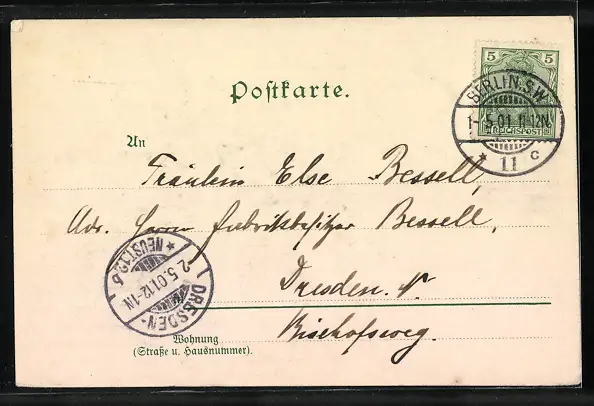 Postkarte.
5 5
REICHSPOST
BERLIN. S.W.
1-5.01.11-12N.
* 11 c
An
Fräulein Else Bessell,
Adr. Herrn Fabrikbesitzer Bessell,
Dresden. N.
Bischofsweg.
DRESDEN-NEUST.12.b *
2.5.01.12-1N
Wohnung
(Straße u. Hausnummer).